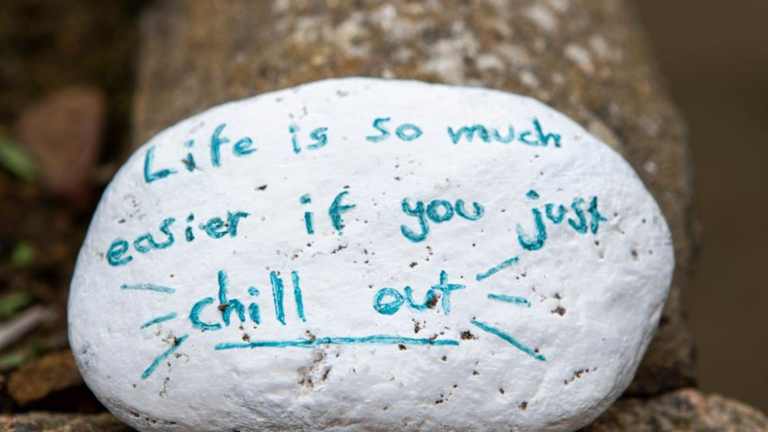 Life is so much
easier if you just
chill out